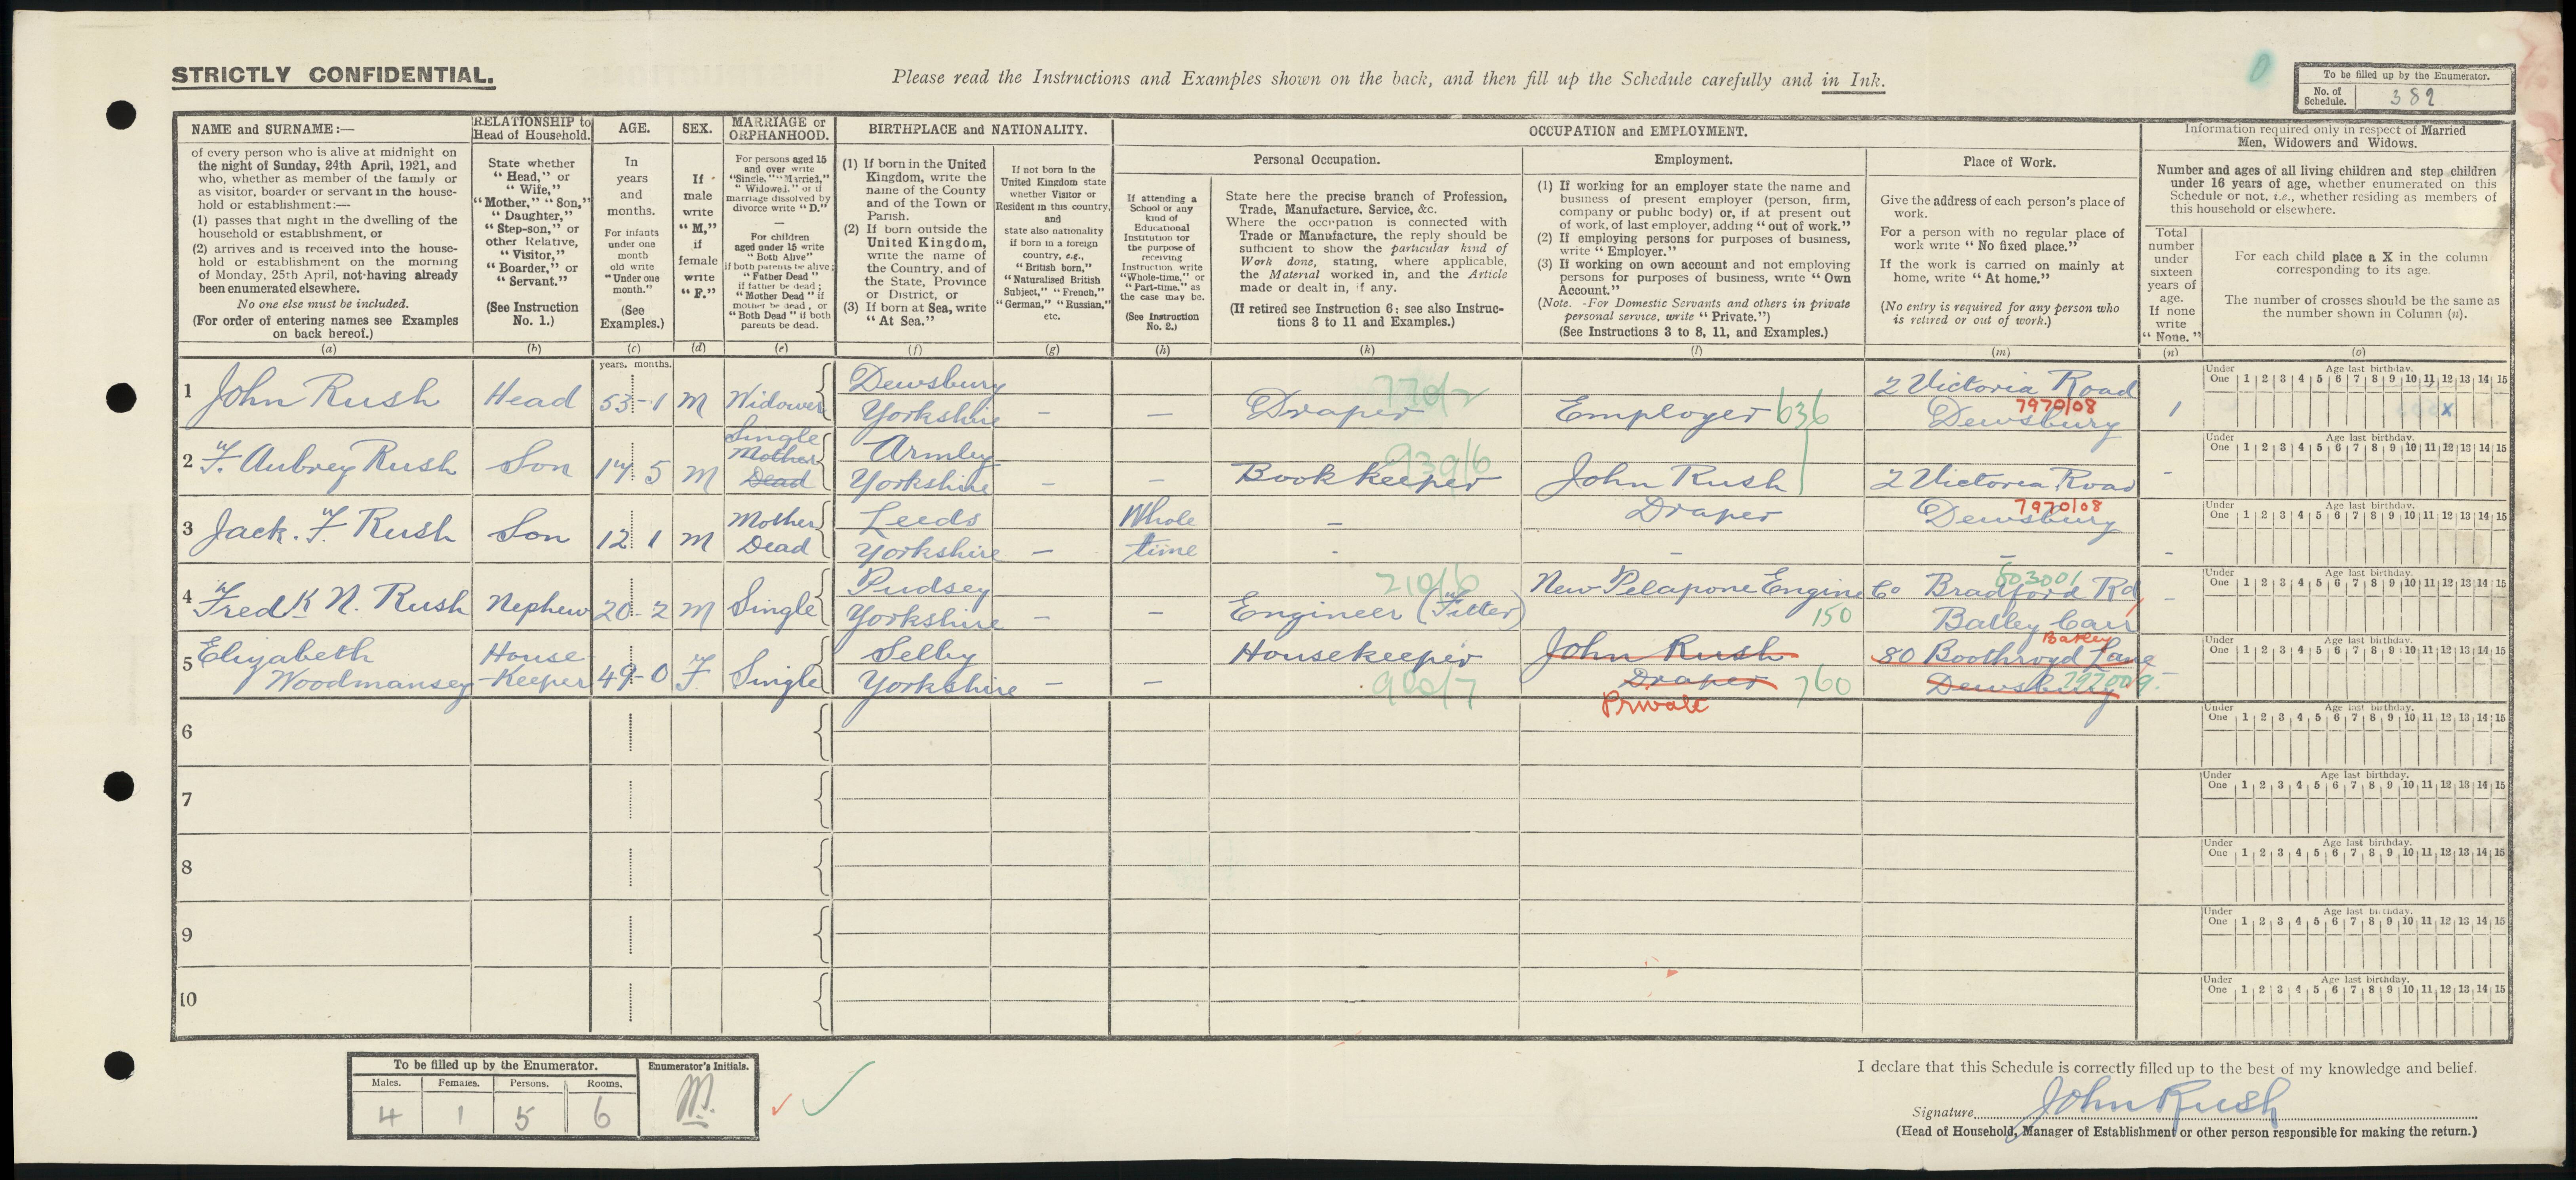 STRICTLY CONFIDENTIAL.
Please read the Instructions and Examples shown on the back, and then fill up the Schedule carefully and in Ink.
To be filled up by the Enumerator.
No. of Schedule. 382
NAME and SURNAME:—
of every person who is alive at midnight on
the night of Sunday, 24th April, 1921, and
who, whether as member of the family or
as visitor, boarder or servant in the house-
hold or establishment:—
(1) passes that night in the dwelling of the
household or establishment, or
(2) arrives and is received into the house-
hold or establishment on the morning
of Monday, 25th April, not having already
been enumerated elsewhere.
No one else must be included.
(For order of entering names see Examples
on back hereof.)
(a)
RELATIONSHIP to
Head of Household.
State whether
"Head," or
"Wife,"
"Mother," "Son,"
"Daughter,"
"Step-son," or
other Relative,
"Visitor,"
"Boarder," or
"Servant."
(See Instruction
No. 1.)
(b)
AGE.
In
years
and
months.
For infants
under one
month
old write
"Under one
month."
(See
Examples.)
(c)
SEX.
If
male
write
"M,"
if
female
write
"F."
(d)
MARRIAGE or
ORPHANHOOD.
For persons aged 15
and over write
"Single," "Married,"
"Widowed," or if
marriage dissolved by
divorce write "D."
—
For children
aged under 15 write
"Both Alive"
if both parents be alive;
"Father Dead"
if father be dead;
"Mother Dead" if
mother be dead, or
"Both Dead" if both
parents be dead.
(e)
BIRTHPLACE and NATIONALITY.
(1) If born in the United
Kingdom, write the
name of the County
and of the Town or
Parish.
(2) If born outside the
United Kingdom,
write the name of
the Country, and of
the State, Province
or District, or
(3) If born at Sea, write
"At Sea."
(f)
If not born in the
United Kingdom state
whether Visitor or
Resident in this country,
and
state also nationality
if born in a foreign
country, e.g.,
"British born,"
"Naturalised British
Subject," "French,"
"German," "Russian,"
etc.
(g)
OCCUPATION and EMPLOYMENT.
Personal Occupation.
If attending a
School or any
kind of
Educational
Institution for
the purpose of
receiving
Instruction write
"Whole-time," or
"Part-time," as
the case may be.
(See Instruction
No. 2.)
(h)
State here the precise branch of Profession,
Trade, Manufacture, Service, &c.
Where the occupation is connected with
Trade or Manufacture, the reply should be
sufficient to show the particular kind of
Work done, stating, where applicable,
the Material worked in, and the Article
made or dealt in, if any.
(If retired see Instruction 6: see also Instruc-
tions 3 to 11 and Examples.)
(k)
Employment.
(1) If working for an employer state the name and
business of present employer (person, firm,
company or public body) or, if at present out
of work, of last employer, adding "out of work."
(2) If employing persons for purposes of business,
write "Employer."
(3) If working on own account and not employing
persons for purposes of business, write "Own
Account."
(Note.-For Domestic Servants and others in private
personal service, write "Private.")
(See Instructions 3 to 8, 11, and Examples.)
(l)
Place of Work.
Give the address of each person's place of
work.
For a person with no regular place of
work write "No fixed place."
If the work is carried on mainly at
home, write "At home."
(No entry is required for any person who
is retired or out of work.)
(m)
Information required only in respect of Married
Men, Widowers and Widows.
Number and ages of all living children and step children
under 16 years of age, whether enumerated on this
Schedule or not, i.e., whether residing as members of
this household or elsewhere.
Total
number
under
sixteen
years of
age.
If none
write
"None."
(n)
For each child place a X in the column
corresponding to its age.
The number of crosses should be the same as
the number shown in Column (n).
(o)
years. months.
1 John Rush Head 53-1 M Widower Dewsbury Yorkshire - - Draper 770/2 Employer 636 2 Victoria Road Dewsbury 7970/08 1 x
2 F. Aubrey Rush Son 17 5 M Single Mother Dead Armley Yorkshire - - Book keeper 939/6 John Rush Draper 2 Victoria Road Dewsbury 7970/08 -
3 Jack. F. Rush Son 12 1 M Mother Dead Leeds Yorkshire - Whole time - - - -
4 Fredk N. Rush Nephew 20-2 M Single Pudsey Yorkshire - - Engineer (Fitter) 210/6 New Pelapone Engine Co 150 Bradford Rd Batley Carr 803001 Batley -
5 Elizabeth Woodmansey House-Keeper 49-0 F Single Selby Yorkshire - - Housekeeper 900/7 John Rush Draper Private 760 80 Boothroyd Lane Dewsbury -
6
7
8
9
10
Under One 1 2 3 4 5 6 7 8 9 10 11 12 13 14 15
Age last birthday.
To be filled up by the Enumerator.
Males. Females. Persons. Rooms.
4 1 5 6
Enumerator's Initials.
I declare that this Schedule is correctly filled up to the best of my knowledge and belief.
Signature John Rush
(Head of Household, Manager of Establishment or other person responsible for making the return.)